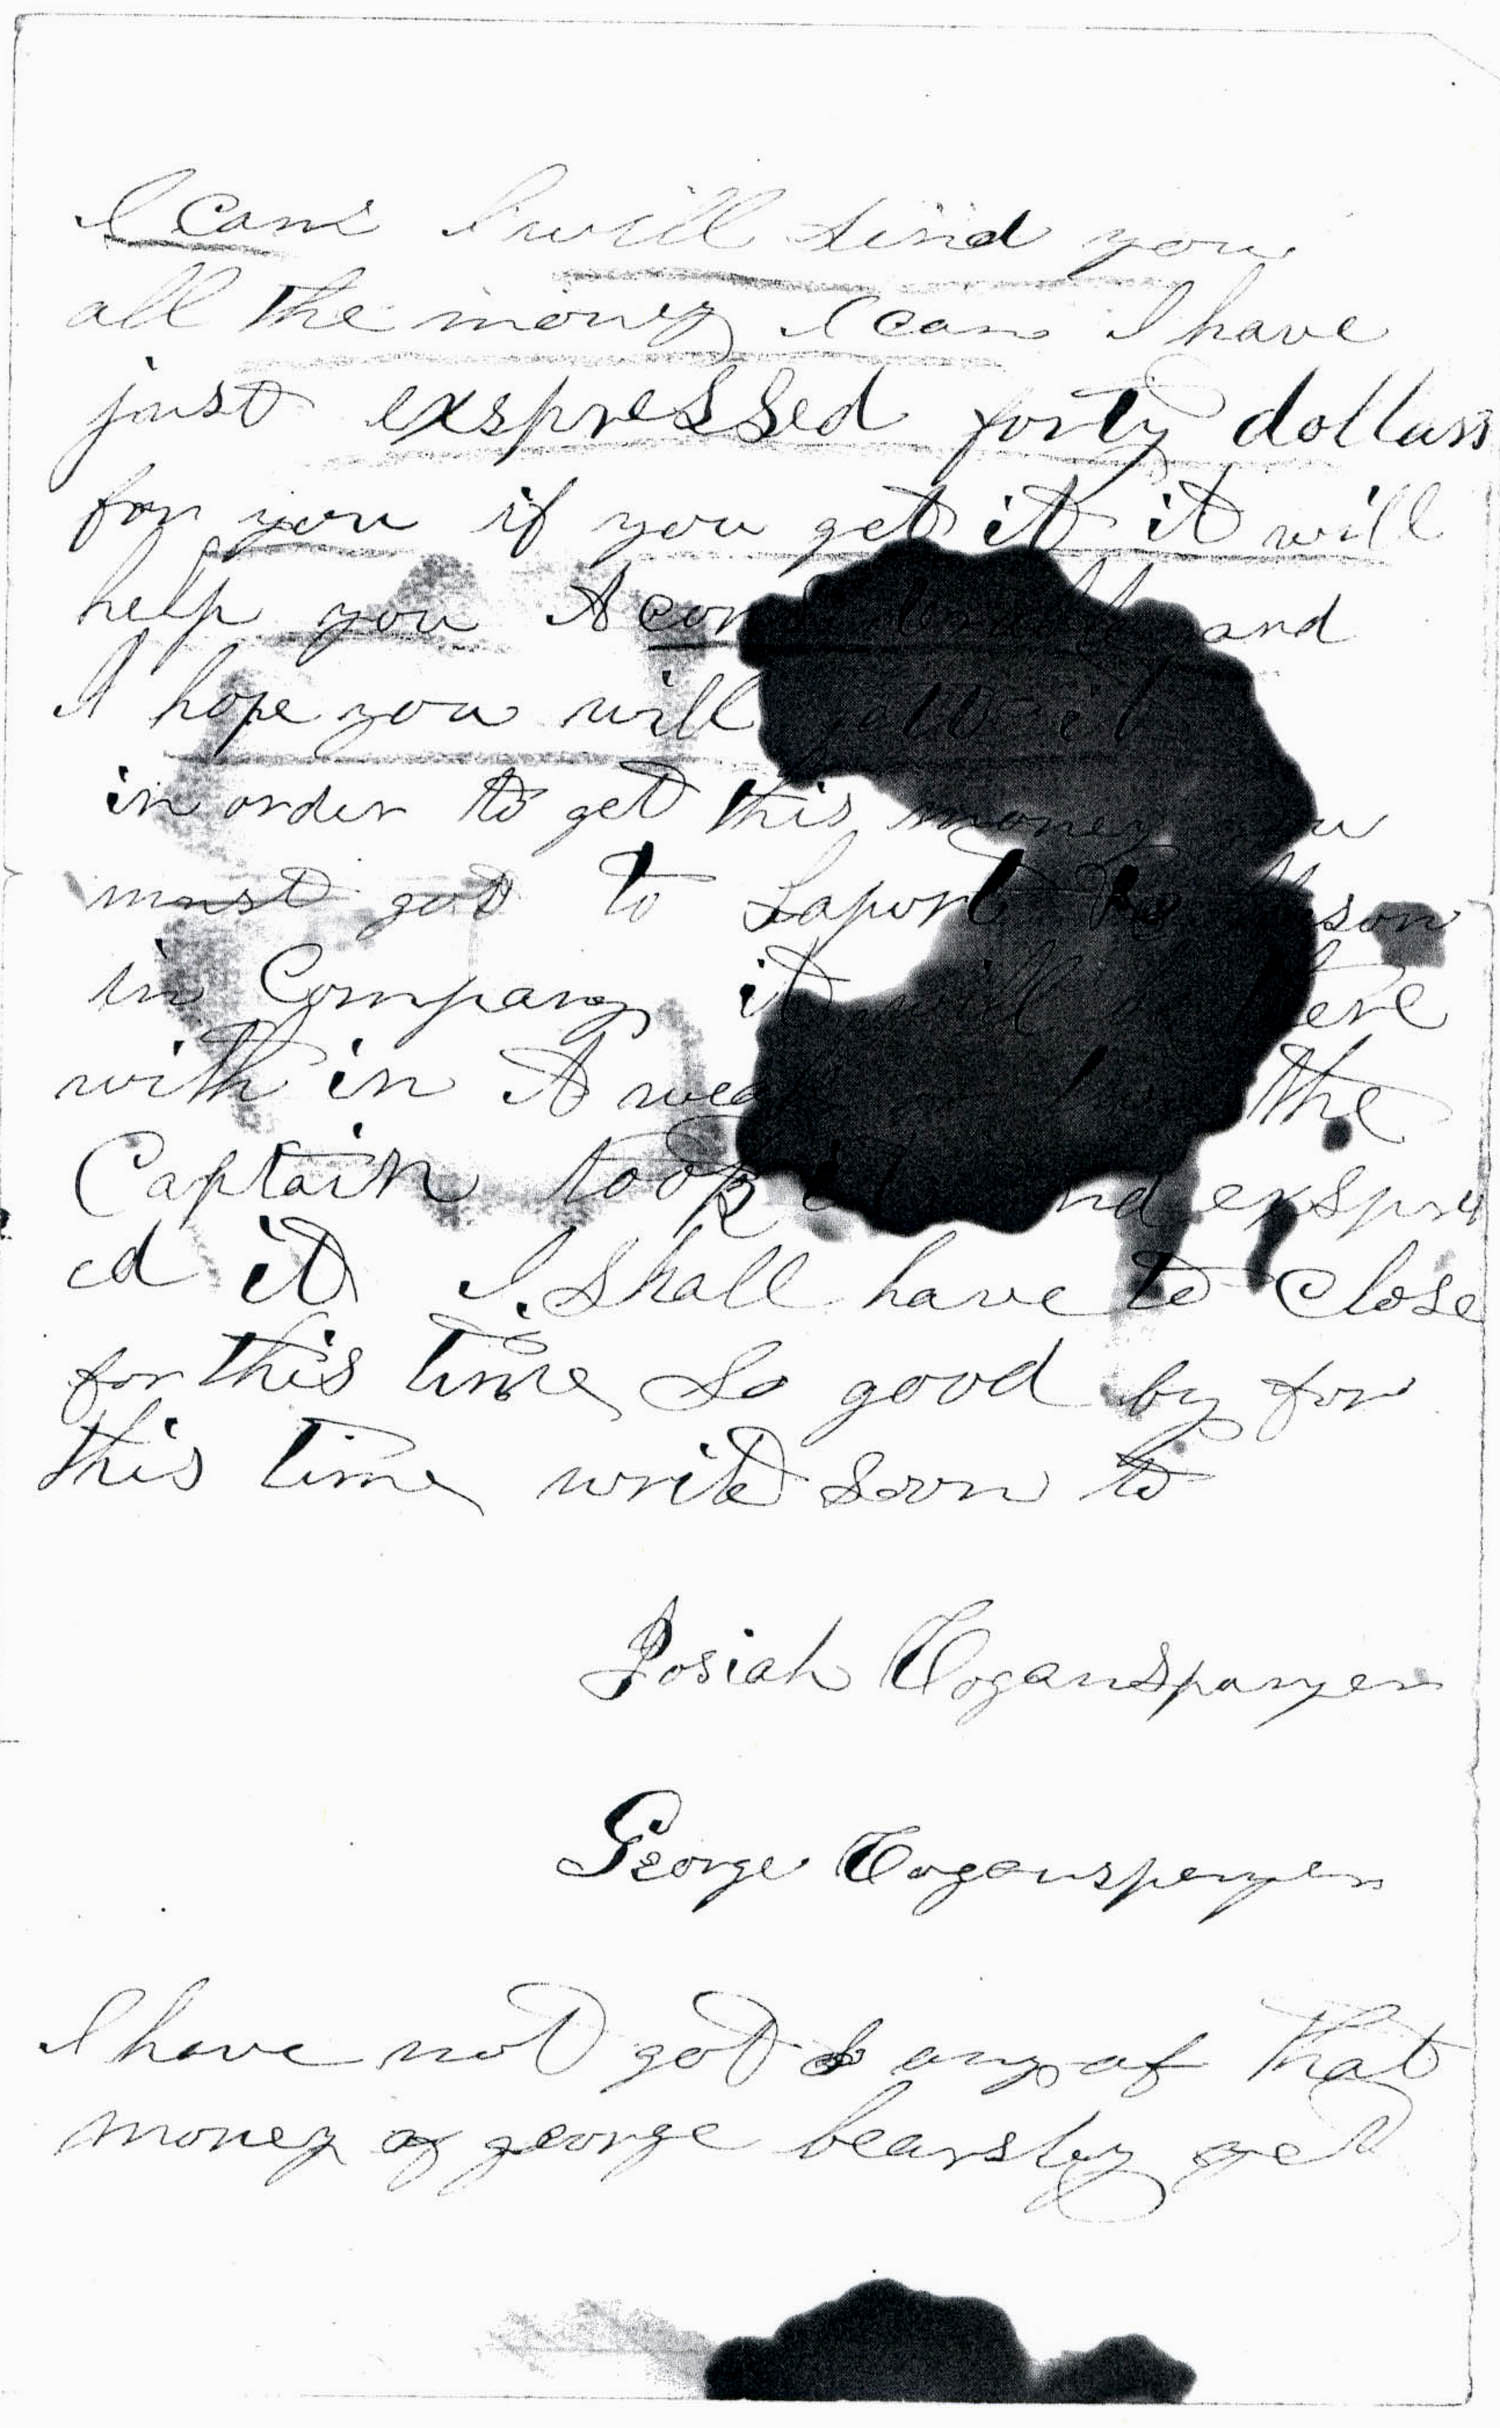 I can I will send you
all the money I can I have
just exspressed forty dollars
for you if you get it it will
help you A and
I hope you will it
in order to get this money you
must got to Laport
in Company it will there
with in A the
Captain took it and exspres
ed it I shall have to close
for this time So good by for
this time write soon to
Josiah
George
I have not got any of that
money of george bearsley yet